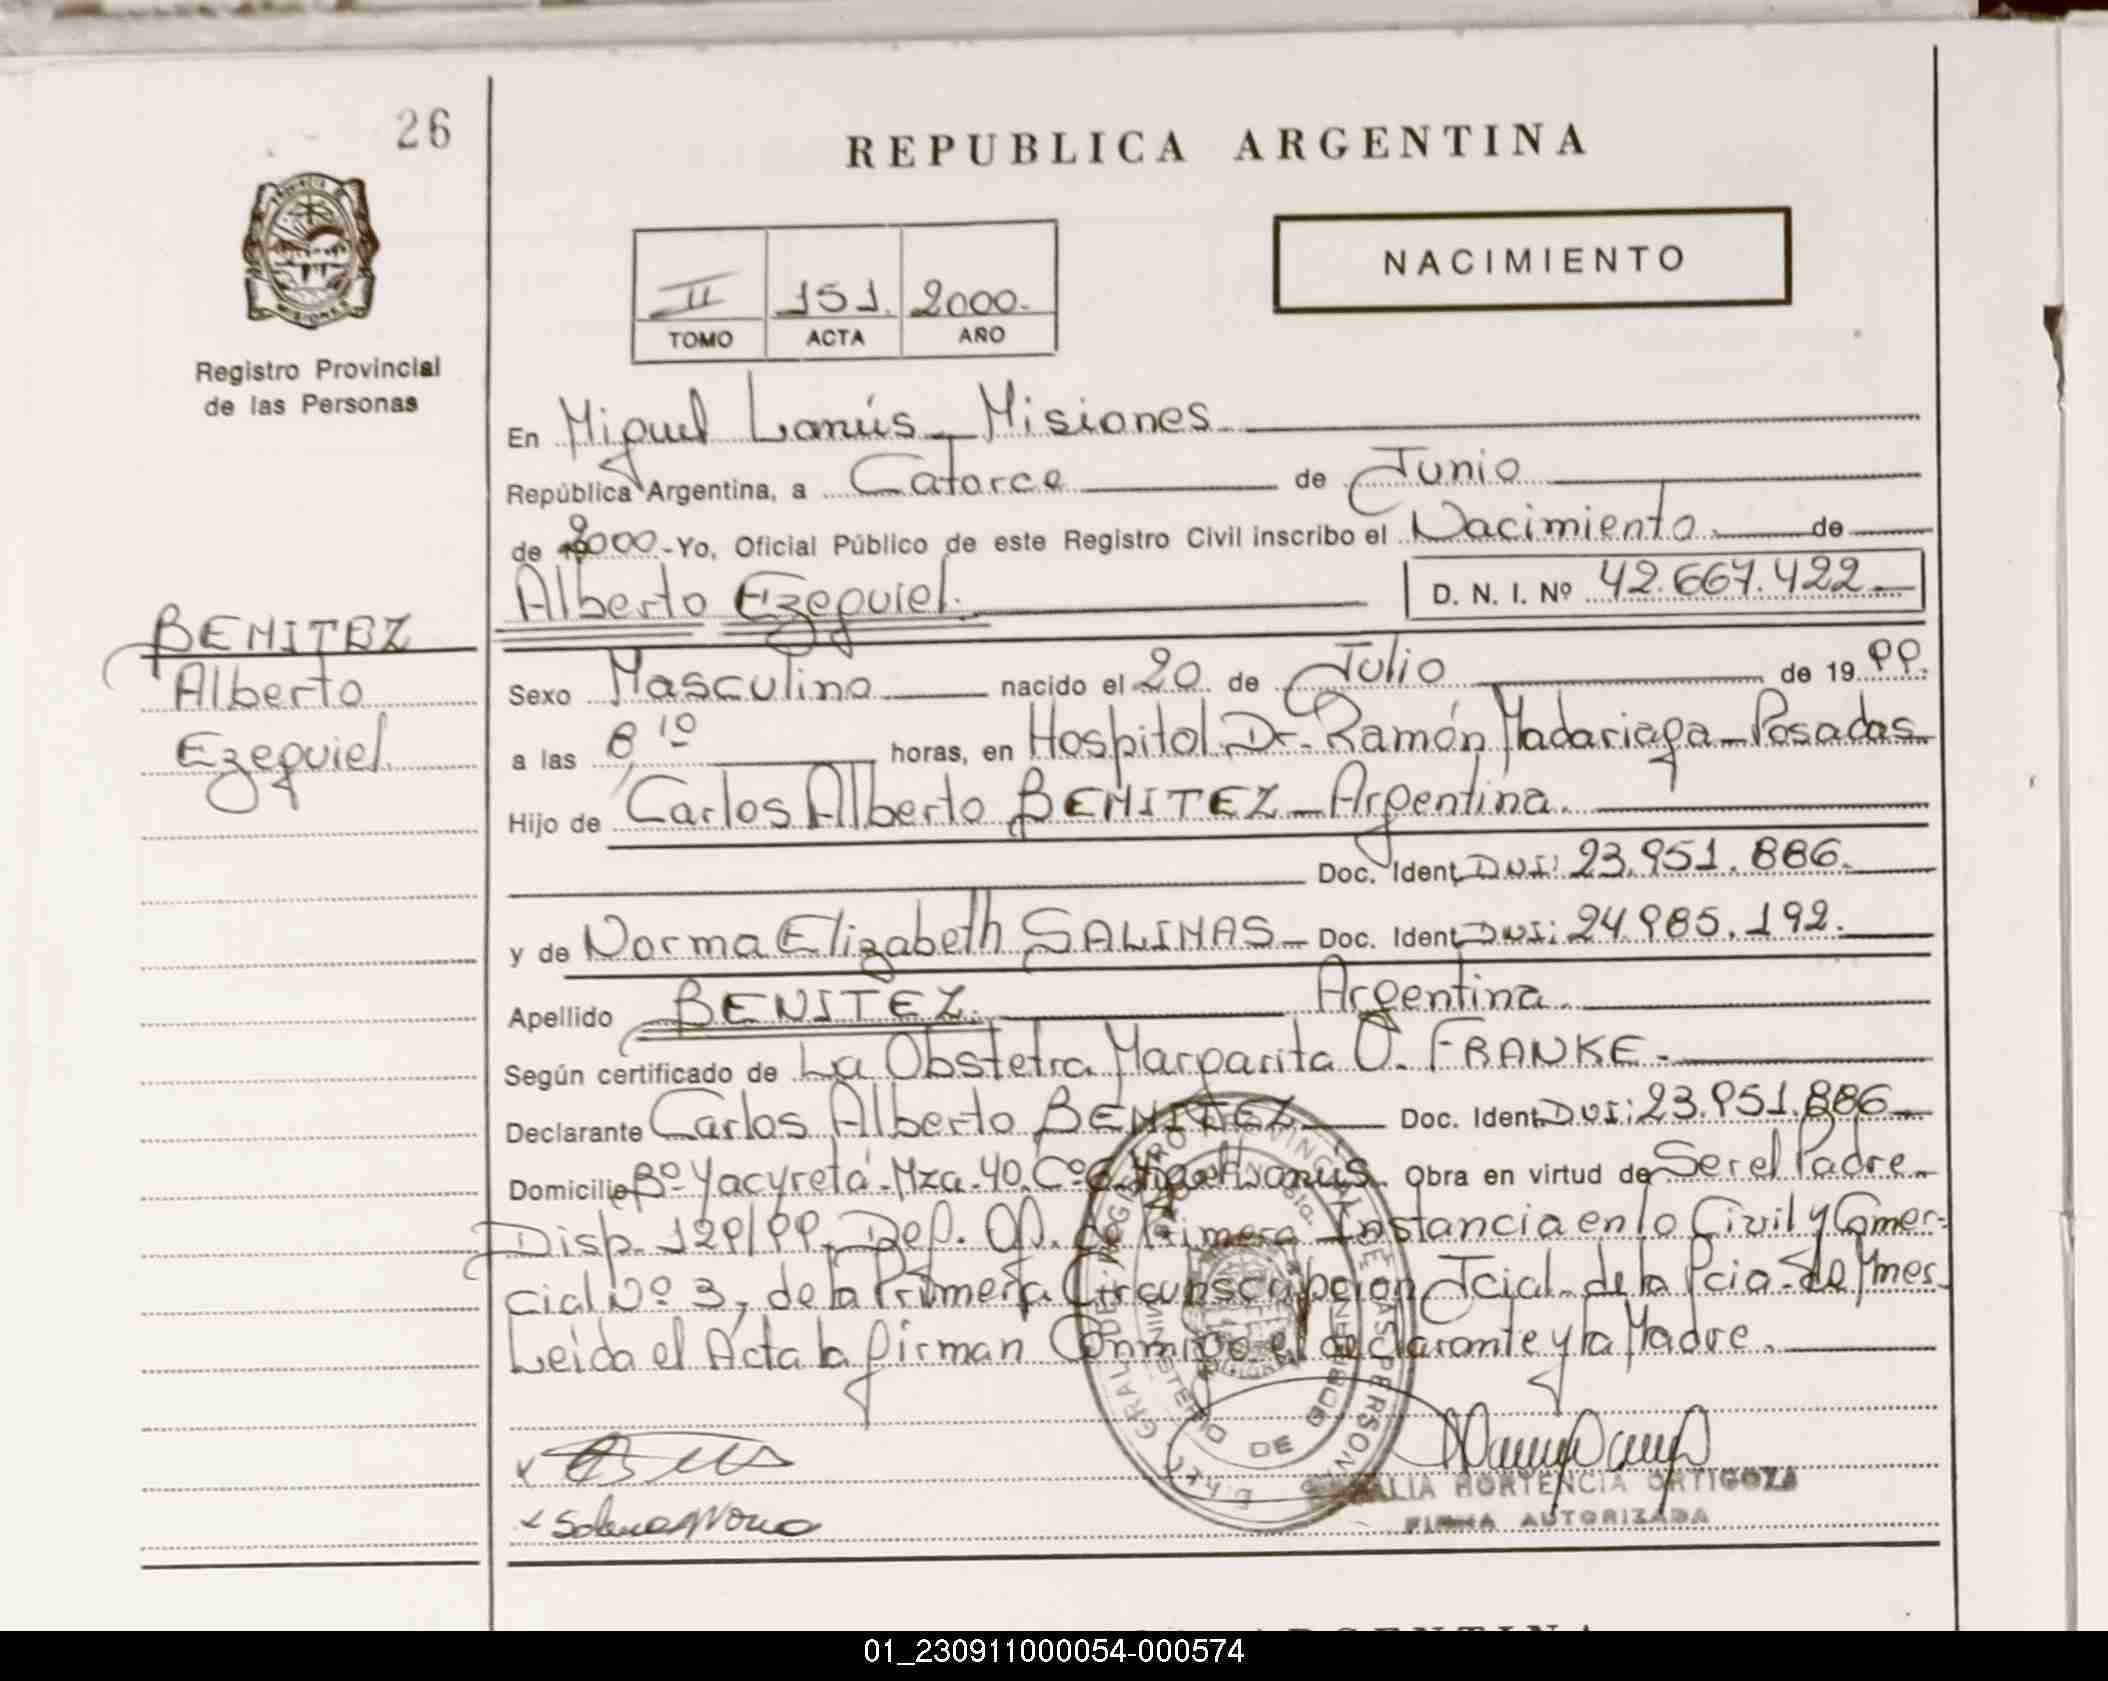 26
REPUBLICA ARGENTINA
NACIMIENTO
II 151. 2000.-
TOMO ACTA AÑO
Registro Provincial
de las Personas
En Miguel Lanús - Misiones
República Argentina, a Catorce de Junio
de 2000 - Yo, Oficial Público de este Registro Civil inscribo el Nacimiento de
Alberto Ezequiel. D. N. I. Nº 42.667.422.-
BENITEZ
Alberto
Ezequiel
Sexo Masculino nacido el 20 de Julio de 1999.
a las 8 10 horas, en Hospital Dr. Ramón Madariaga - Posadas
Hijo de Carlos Alberto BENITEZ - Argentina.
Doc. Ident. DNI: 23.951.886.
y de Norma Elizabeth SALINAS - Doc. Ident. DNI: 24.985.192.
Apellido BENITEZ. Argentina.
Según certificado de La Obstetra Margarita O. FRANKE.-
Declarante Carlos Alberto BENITEZ Doc. Ident. DNI: 23.951.886
Domicilio Bº Yacyretá - Mza. 40. Cº 6 Miguel Lanús. Obra en virtud de Ser el Padre.
Disp. 129/99. Def. Of. de Primera Instancia en lo Civil y Comer-
cial Nº 3, de la Primera Circunscripcion Jcial. de la Pcia. de Mnes.
Leida el Acta la firman Conmigo el declarante y la Madre.
HORTENCIA ORTIGOZA
FIRMA AUTORIZADA
ARGENTINA
01_230911000054-000574